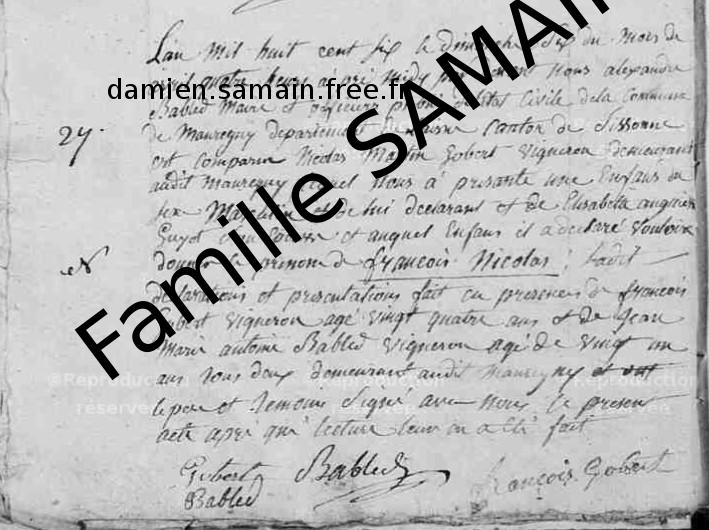 L'an mil huit cent six le dimanche six du mois de
avril quatre heurs apré midy nous alexandre
Babled Maire et officiers Civile de la Commune
27.
de Mauregny departement de Canton de Sissonne
est comparu Nicolas Martin Gobert vigneron demeurant
audit Mauregny lequel Nous a présanté une Enfans du
sex Masculin et de lui declarant et de Elisabelle
Guyot et auquel Enfans il a déclaré vouloir
et
donner le prenom de françois Nicolas ; Ladit
declarations et presentations fait en presences de françois
Gobert vigneron agé vingt quatre ans et de Jean
Marie antoine Babled vigneron agé de vingt un
ans tous deux demeurant audit Mauregny
lepere et temoins Signé avec nous le present
acte apré qui lecture leur en a été fait
Gobert Babled françois Gobert
Babled
damien.samain.free.fr
Famille SAMAIN
©Reproduction réservée
©Reproduction réservée
©Reproduction réservée